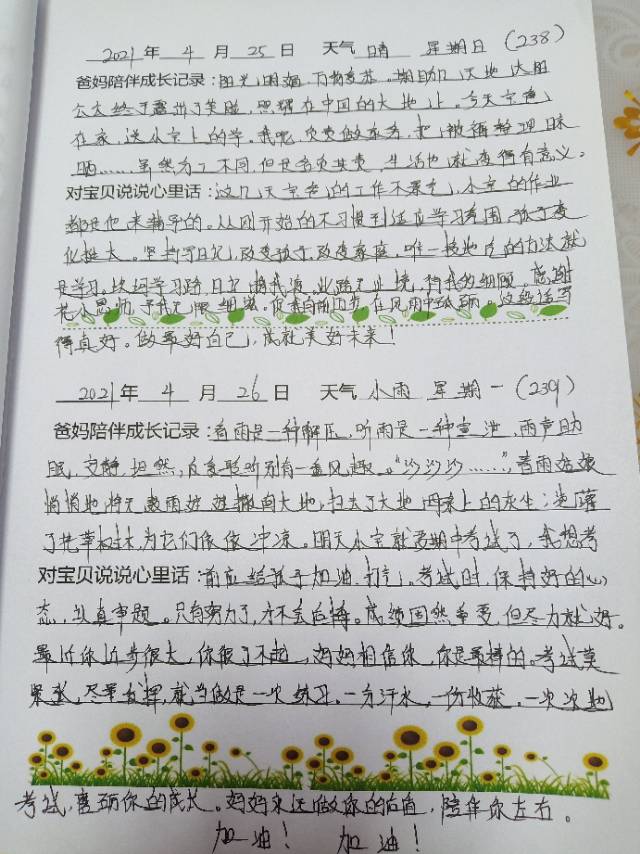 2021年 4 月 25 日 天气 晴 星期日 (238)
爸妈陪伴成长记录：阳光明媚，万物复苏。期盼几天地 太阳
公公终于露出了笑脸，照耀在中国的大地上。今天宝爸
在家，送小宝上的学。我呢，负责做家务，把被褥整理晾
晒……虽然分工不同，但是各负其责，生活也就变得有意义。
对宝贝说说心里话：这几天宝爸的工作不累，小宝的作业
都是他来辅导的。从刚开始的不习惯到适应学习氛围，孩子变
化挺大。坚持写日记，改变孩子，改变家庭，唯一接地气的办法就
是学习。学习路，日记
老师 细 在风雨中 。这段话写
得真好。做最好自己，成就美好未来！
2021年 4 月 26 日 天气 小雨 星期一 (239)
爸妈陪伴成长记录：看雨是一种解压，听雨是一种宣泄，雨声助
眠，安静坦然，反复聆听别有一番风趣。“沙沙沙……”，春雨姑娘
悄悄地将无数雨娃娃撒向大地，扫去了大地母亲上的灰尘；洗落
了花草树木，为它们做做冲凉。明天小宝就要期中考试了，我想考
对宝贝说说心里话：前应给孩子加油，打气，考试时，保持好的心
态，认真审题。只有努力了，才不会后悔。成绩固然重要，但尽力就好。
最近你进步很大，你很了不起，妈妈相信你，你是最棒的。考试莫
紧张，尽量发挥，就当做是一次练习。一分汗水，一份收获，一次次地
考试，磨砺你的成长。妈妈永远做你的后盾，陪伴你左右。
加油！ 加油！